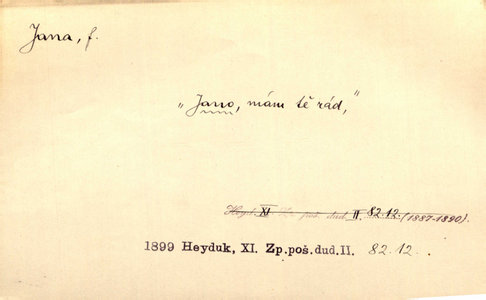 Jana, f.
„Jano, mám tě rád,"
Heyd. XI Zp. poš. dud. II. 82.12. (1887-1890).
1899 Heyduk, XI. Zp.poš.dud.II. 82.12.